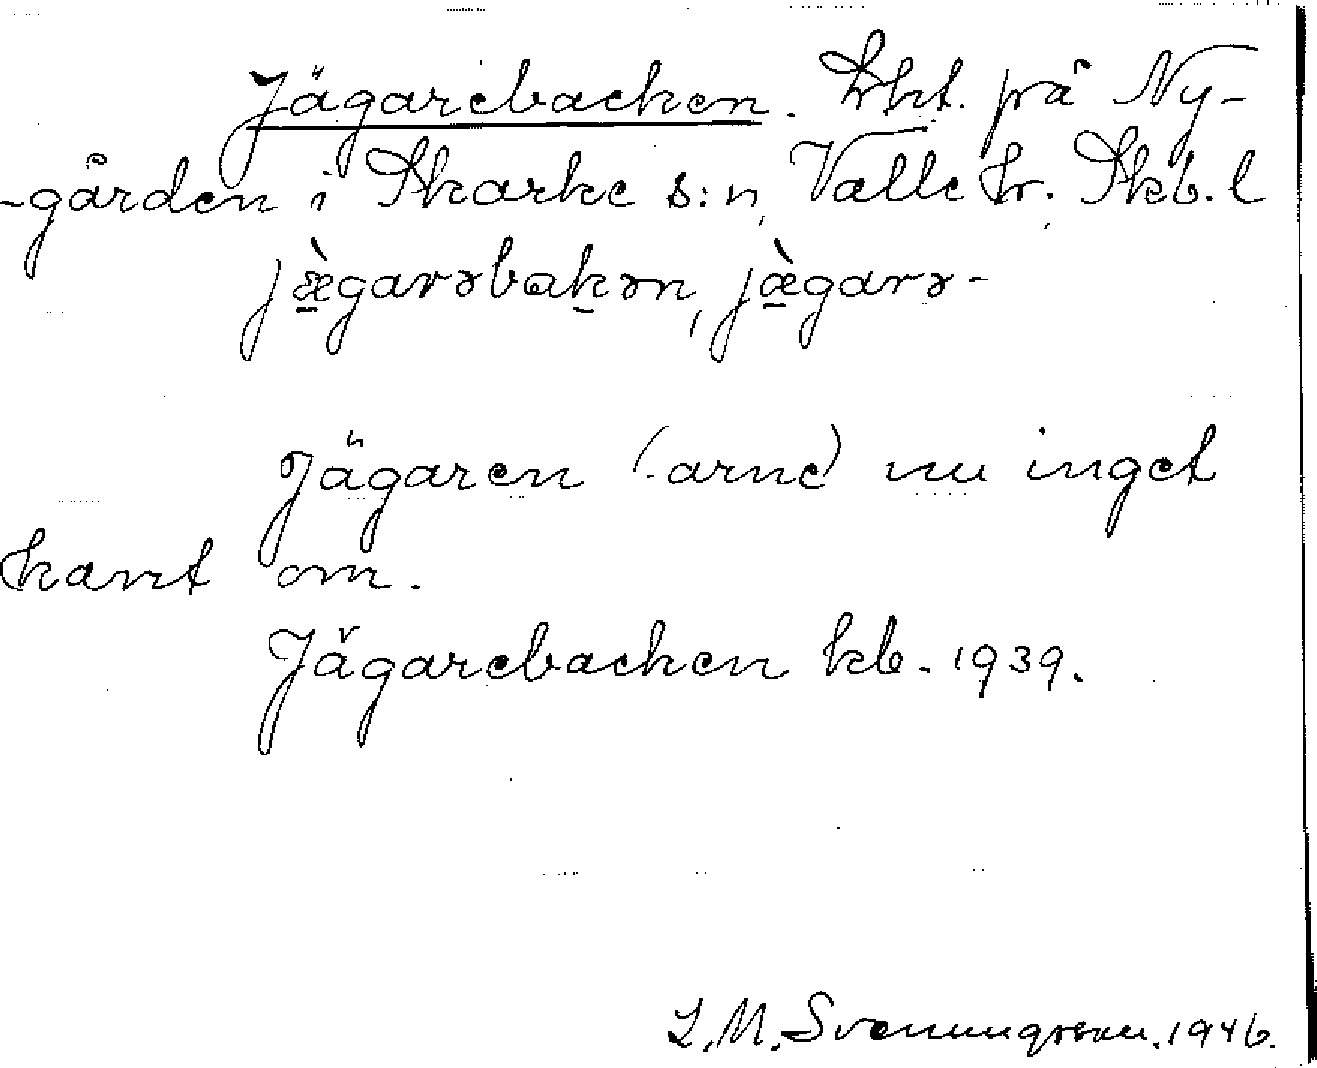 Jägarebacken. Lht. på Ny-
-gården i Skarke s:n, Valle hr. Skb. l
jæ̀garəbakən, jæ̀garə-
Jägaren (-arne) nu inget
kant om.
Jägarebacken kb. 1939.
L. M. Svenungsson. 1946.